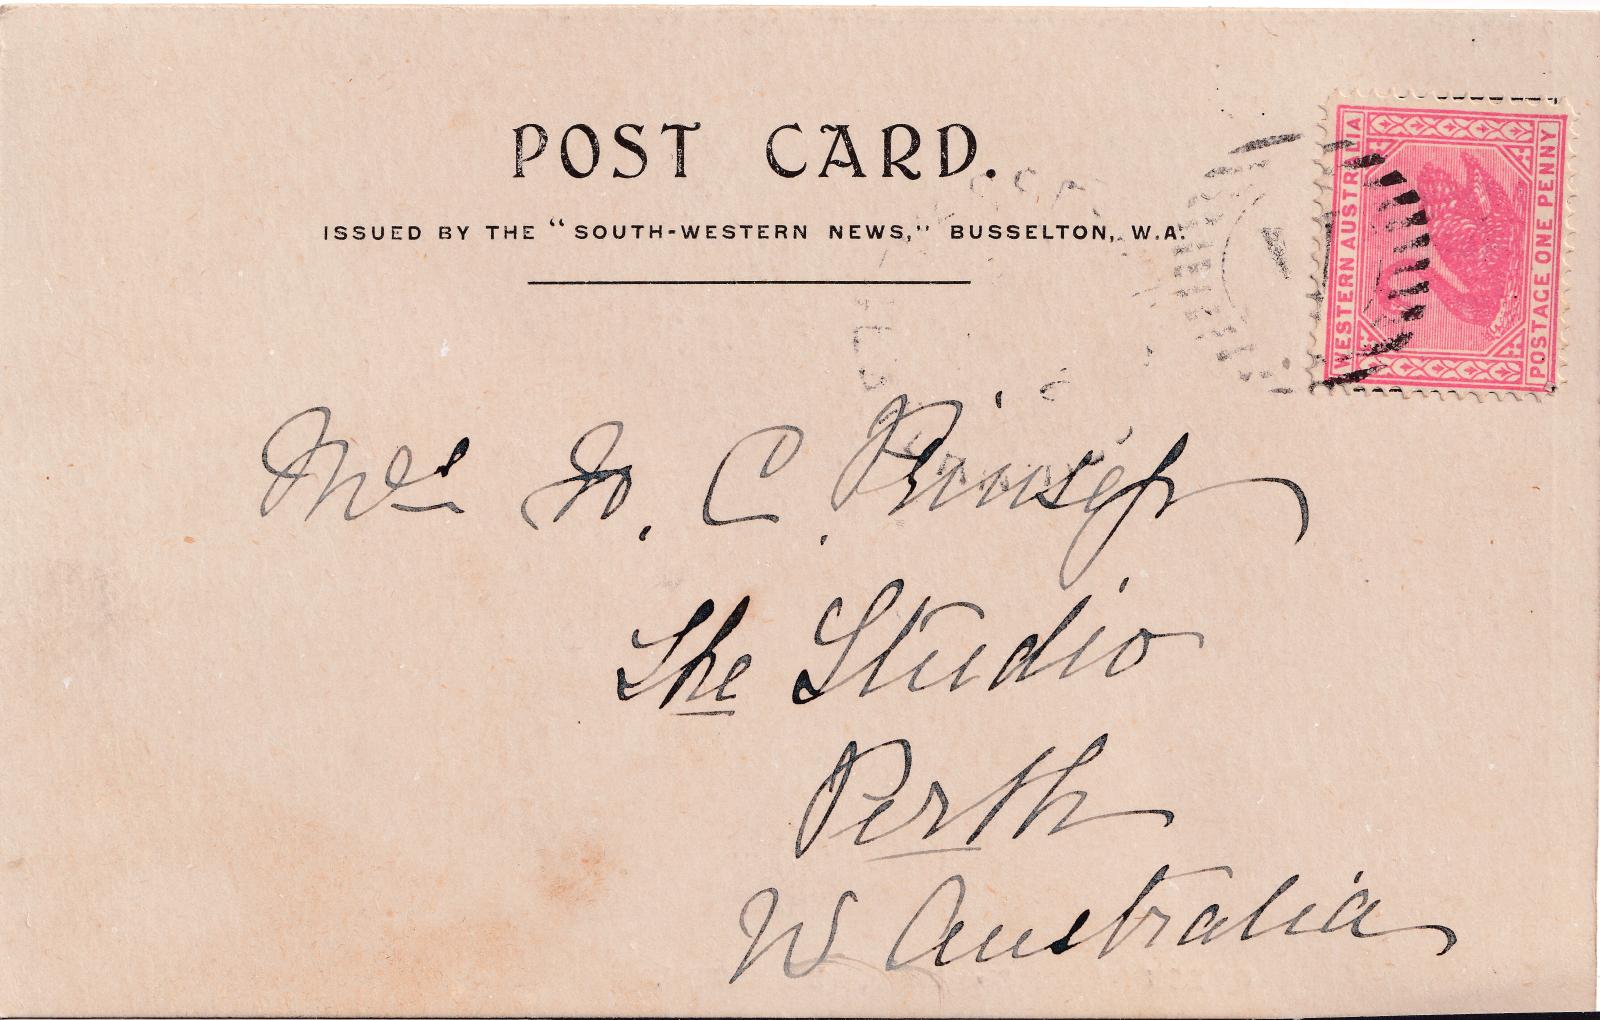 POST CARD.
ISSUED BY THE "SOUTH-WESTERN NEWS," BUSSELTON, W.A.
WESTERN AUSTRALIA
POSTAGE ONE PENNY
Mrs H. C. Prinsep
The Studio
Perth
W Australia